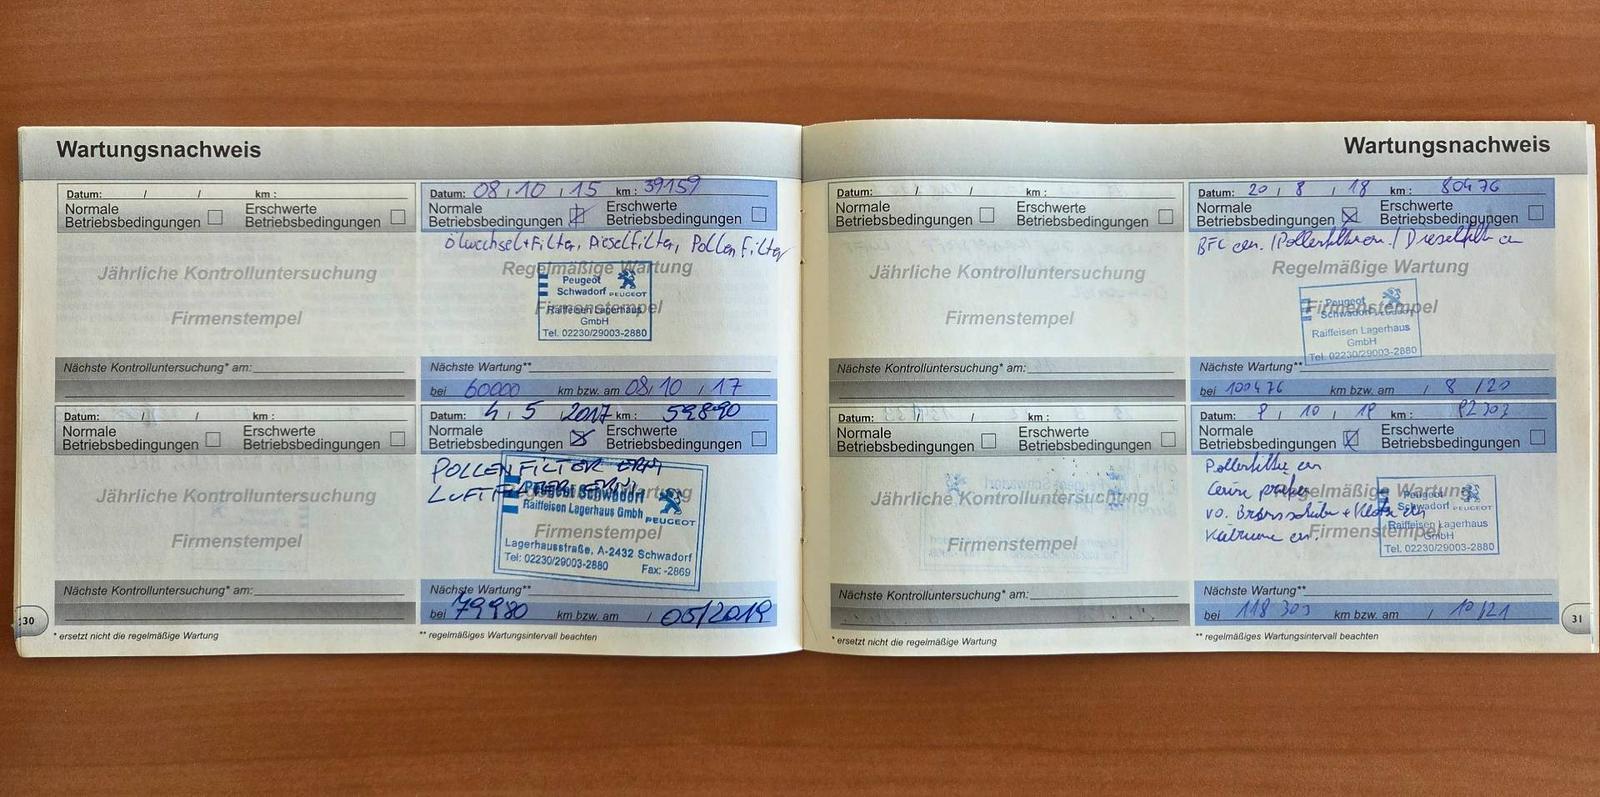 Wartungsnachweis
Datum: / / km :
Normale Betriebsbedingungen
Erschwerte Betriebsbedingungen
Jährliche Kontrolluntersuchung
Firmenstempel
Nächste Kontrolluntersuchung* am:
Datum: 08 / 10 / 15 km : 39159
Normale Betriebsbedingungen
Erschwerte Betriebsbedingungen
Ölwechsel+Filter, Dieselfilter, Pollenfilter
Regelmäßige Wartung
Firmenstempel
Peugeot
Schwadorf PEUGEOT
Raiffeisen Lagerhaus
GmbH
Tel. 02230/29003-2880
Nächste Wartung**
bei 60000 km bzw. am 08 / 10 / 17
Datum: / / km :
Normale Betriebsbedingungen
Erschwerte Betriebsbedingungen
Jährliche Kontrolluntersuchung
Firmenstempel
Nächste Kontrolluntersuchung* am:
Datum: 4 / 5 / 2017 km : 59890
Normale Betriebsbedingungen
Erschwerte Betriebsbedingungen
POLLENFILTER ERN
LUFTFILTER ERN.
Regelmäßige Wartung
Firmenstempel
Peugeot Schwadorf
Raiffeisen Lagerhaus Gmbh PEUGEOT
Lagerhausstraße, A-2432 Schwadorf
Tel: 02230/29003-2880 Fax: -2869
Nächste Wartung**
bei 79980 km bzw. am / 05/2019
30
* ersetzt nicht die regelmäßige Wartung
** regelmäßiges Wartungsintervall beachten
Wartungsnachweis
Datum: / / km :
Normale Betriebsbedingungen
Erschwerte Betriebsbedingungen
Jährliche Kontrolluntersuchung
Firmenstempel
Nächste Kontrolluntersuchung* am:
Datum: 20 / 8 / 18 km : 80476
Normale Betriebsbedingungen
Erschwerte Betriebsbedingungen
Regelmäßige Wartung
Firmenstempel
Peugeot
Schwadorf PEUGEOT
Raiffeisen Lagerhaus
GmbH
Tel. 02230/29003-2880
Nächste Wartung**
bei 100476 km bzw. am / 8 / 20
Datum: / / km :
Normale Betriebsbedingungen
Erschwerte Betriebsbedingungen
Jährliche Kontrolluntersuchung
Firmenstempel
Nächste Kontrolluntersuchung* am:
Datum: / 10 / km :
Normale Betriebsbedingungen
Erschwerte Betriebsbedingungen
Pollenfilter
Regelmäßige Wartung
Firmenstempel
Peugeot
Schwadorf PEUGEOT
Raiffeisen Lagerhaus
GmbH
Tel. 02230/29003-2880
Nächste Wartung**
bei 118303 km bzw. am / 10/21
* ersetzt nicht die regelmäßige Wartung
** regelmäßiges Wartungsintervall beachten
31